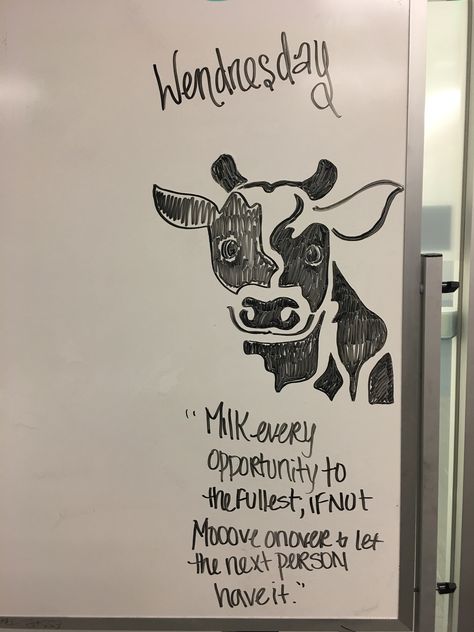 Wendnesday
"Milk every
opportunity to
the fullest, if not
Mooove on over to let
the next person
have it."